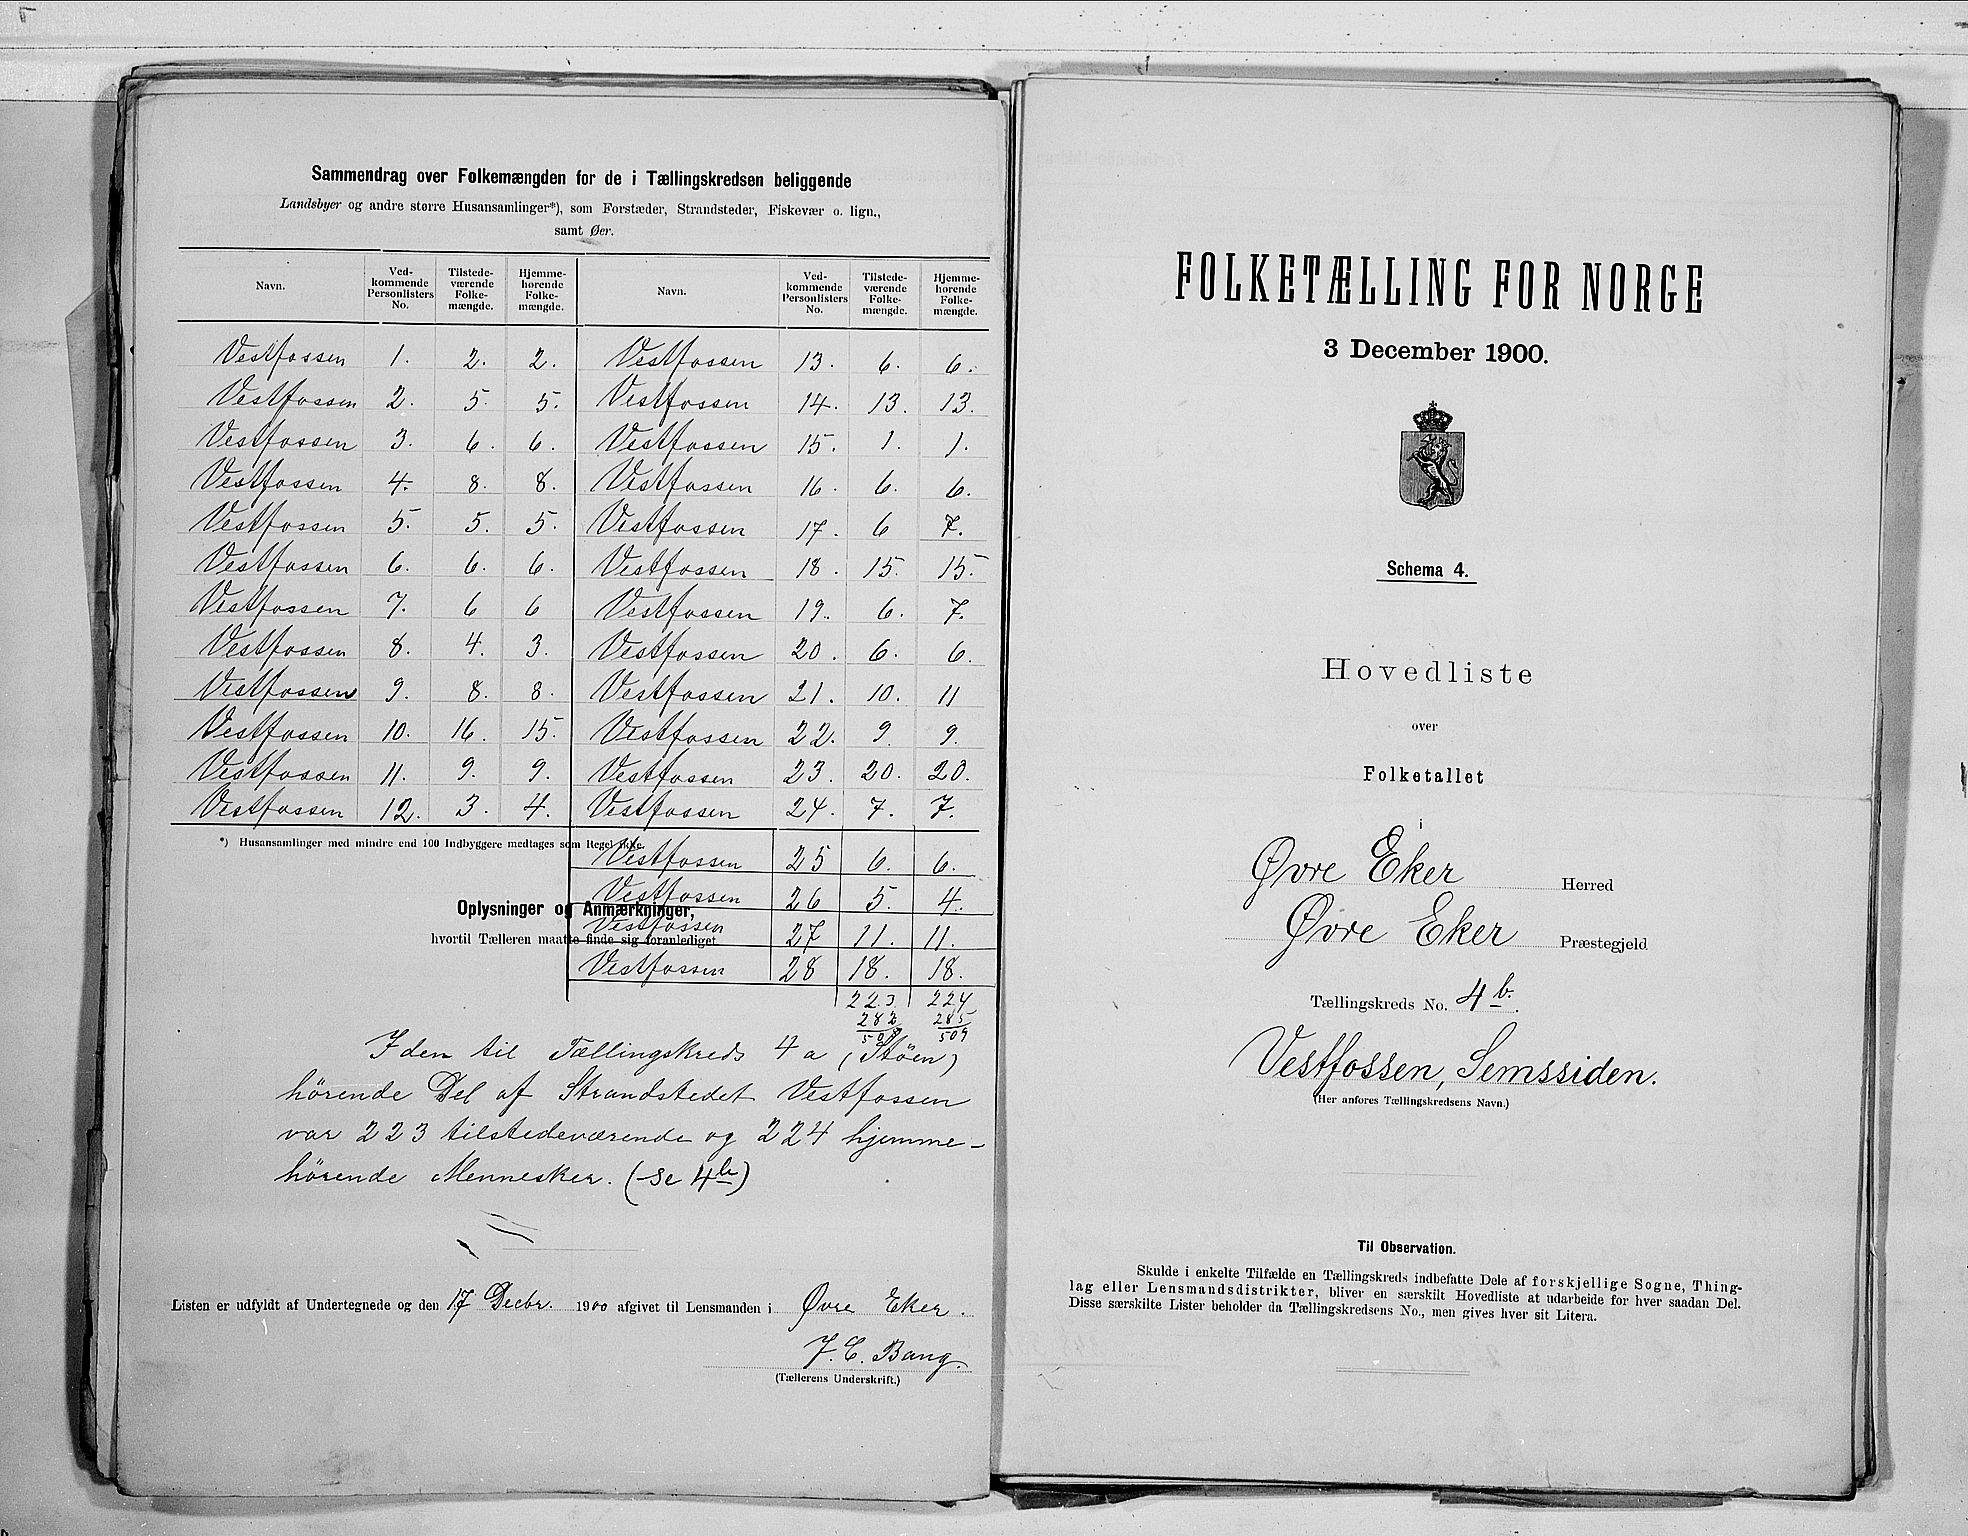 Sammendrag over Folkemængden for de i Tællingskredsen beliggende
Landsbyer og andre større Husansamlinger*), som Forstæder, Strandsteder, Fiskevær o. lign.,
samt Øer.
Navn. Ved-kommende Personlisters No. Tilstede-værende Folke-mængde. Hjemme-hörende Folke-mængde. Navn. Ved-kommende Personlisters No. Tilstede-værende Folke-mængde. Hjemme-hörende Folke-mængde.
Vestfossen 1. 2. 2. Vestfossen 13. 6. 6.
Vestfossen 2. 5. 5. Vestfossen 14. 13. 13.
Vestfossen 3. 6. 6. Vestfossen 15. 1. 1.
Vestfossen 4. 8. 8. Vestfossen 16. 6. 6.
Vestfossen 5. 5. 5. Vestfossen 17. 6 7.
Vestfossen 6. 6. 6. Vestfossen 18. 15. 15.
Vestfossen 7. 6 6 Vestfossen 19. 6. 7.
Vestfossen 8. 4. 3. Vestfossen 20. 6. 6.
Vestfossen 9. 8. 8. Vestfossen 21. 10. 11
Vestfossen 10. 16. 15. Vestfossen 22. 9. 9.
Vestfossen 11. 9. 9. Vestfossen 23. 20. 20.
Vestfossen 12. 3. 4. Vestfossen 24. 7. 7.
*) Husansamlinger med mindre end 100 Indbyggere medtages som Regel ikke.
Vestfossen 25 6. 6.
Vestfossen 26 5. 4.
Oplysninger og Anmærkninger,
Vestfossen 27 11. 11.
hvortil Tælleren maatte finde sig foranlediget
Vestfossen 28 18. 18.
223 224
285
509
I den til Tællingskreds 4 a (Støen)
hörende Del af Strandstedet Vestfossen
var 223 tilstedeværende og 224 hjemme-
hörende Mennesker. (se 4b)
Listen er udfyldt af Undertegnede og den 17 Decbr. 1900 afgivet til Lensmanden i Øvre Eker.
J. C. Bang.
(Tællerens Underskrift.)
FOLKETÆLLING FOR NORGE
3 December 1900.
Schema 4.
Hovedliste
over
Folketallet
i
Øvre Eker Herred
Øvre Eker Præstegjeld
Tællingskreds No. 4b.
Vestfossen, Semssiden.
(Her anføres Tællingskredsens Navn.)
Til Observation.
Skulde i enkelte Tilfælde en Tællingskreds indbefatte Dele af forskjellige Sogne, Thing-
lag eller Lensmandsdistrikter, bliver en særskilt Hovedliste at udarbeide for hver saadan Del.
Disse særskilte Lister beholder da Tællingskredsens No., men gives hver sit Litera.